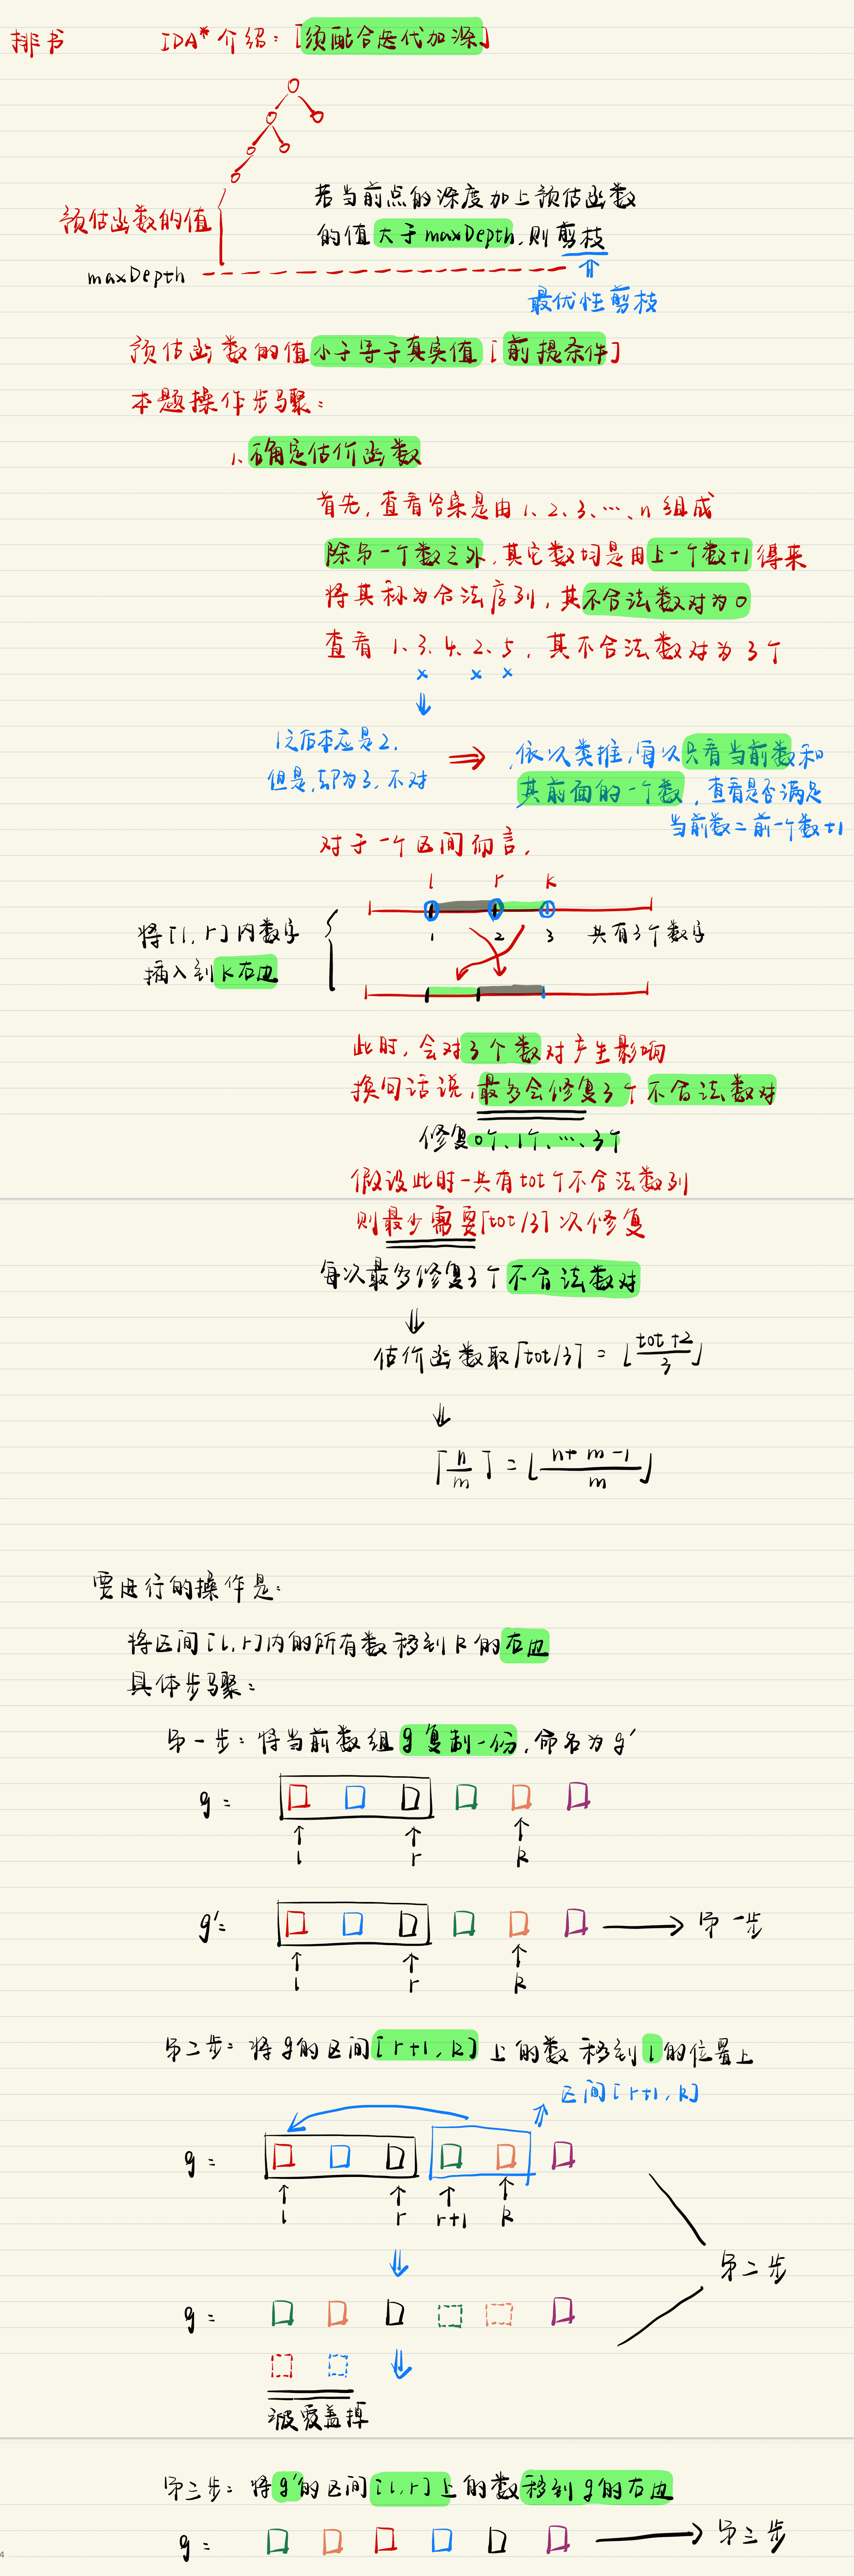 排书 IDA* 介绍：[须配合迭代加深]
若当前点的深度加上预估函数
预估函数的值
的值大于maxDepth，则剪枝
maxDepth
最优性剪枝
预估函数的值小于等于真实值 [前提条件]
本题操作步骤：
1、确定估价函数
首先，查看答案是由1、2、3、…、n 组成
除第一个数之外，其它数均是由上一个数+1得来
将其称为合法序列，其不合法数对为0
查看 1、3、4、2、5，其不合法数对为3个
x x x
1之后本应是2，
但是，却为3，不对
依次类推，每次只看当前数和
其前面的一个数，查看是否满足
当前数=前一个数+1
对于一个区间而言，
l r k
将[l, r]内数字
插入到k右边
1 2 3 共有3个数字
此时，会对3个数对产生影响
换句话说，最多会修复3个不合法数对
修复0个、1个、…、3个
假设此时一共有tot个不合法数列
则最少需要⌈tot/3⌉次修复
每次最多修复3个不合法数对
估价函数取⌈tot/3⌉ = ⌊(tot+2)/3⌋
⌈n/m⌉ = ⌊(n+m-1)/m⌋
要进行的操作是：
将区间[l, r]内的所有数移到k的右边
具体步骤：
第一步：将当前数组g复制一份，命名为g'
g =
l r k
g' = 第一步
l r k
第二步：将g的区间[r+1, k]上的数移到l的位置上
区间[r+1, k]
g =
l r r+1 k
第二步
g =
被覆盖掉
第三步：将g'的区间[l, r]上的数移到g的右边
g = 第三步
4